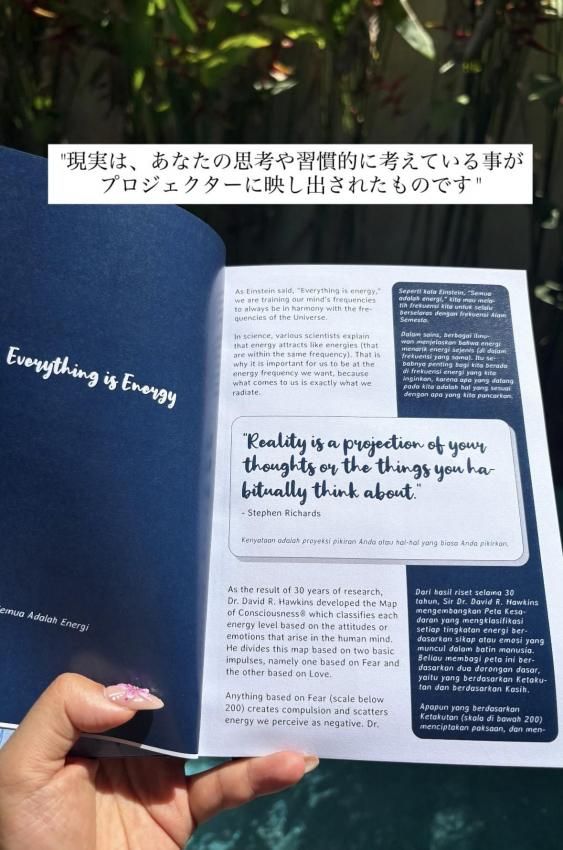 "現実は、あなたの思考や習慣的に考えている事が
プロジェクターに映し出されたものです"
Everything is Energy
Semua Adalah Energi
As Einstein said, "Everything is energy,"
we are training our mind's frequencies
to always be in harmony with the fre-
quencies of the Universe.
In science, various scientists explain
that energy attracts like energies (that
are within the same frequency). That is
why it is important for us to be at the
energy frequency we want, because
what comes to us is exactly what we
radiate.
Seperti kata Einstein, "Semua
adalah energi," kita mau mela-
tih frekuensi kita untuk selalu
berselaras dengan frekuensi Alam
Semesta.
Dalam sains, berbagai ilmu-
wan menjelaskan bahwa energi
menarik energi sejenis (di dalam
frekuensi yang sama). Itu se-
babnya penting bagi kita berada
di frekuensi energi yang kita
inginkan, karena apa yang datang
pada kita adalah hal yang sesuai
dengan apa yang kita pancarkan.
"Reality is a projection of your
thoughts or the things you ha-
bitually think about."
- Stephen Richards
Kenyataan adalah proyeksi pikiran Anda atau hal-hal yang biasa Anda pikirkan.
As the result of 30 years of research,
Dr. David R. Hawkins developed the Map
of Consciousness® which classifies each
energy level based on the attitudes or
emotions that arise in the human mind.
He divides this map based on two basic
impulses, namely one based on Fear and
the other based on Love.
Anything based on Fear (scale below
200) creates compulsion and scatters
energy we perceive as negative. Dr.
Dari hasil riset selama 30
tahun, Sir Dr. David R. Hawkins
mengembangkan Peta Kesa-
daran yang mengklasifikasi
setiap tingkatan energi ber-
dasarkan sikap atau emosi yang
muncul dalam batin manusia.
Beliau membagi peta ini ber-
dasarkan dua dorongan dasar,
yaitu yang berdasarkan Ketaku-
tan dan berdasarkan Kasih.
Apapun yang berdasarkan
Ketakutan (skala di bawah 200)
menciptakan paksaan, dan men-